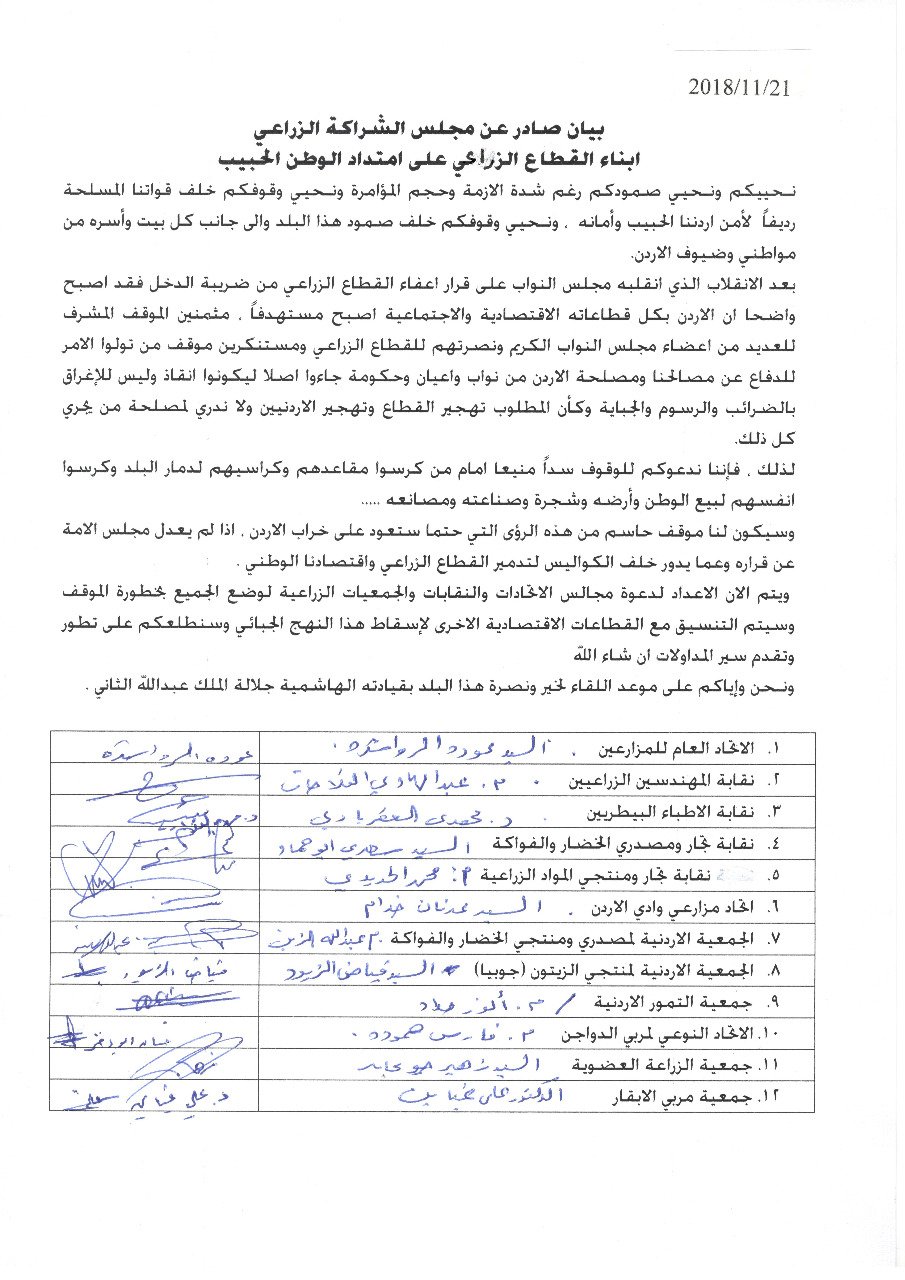 2018/11/21
بيان صادر عن مجلس الشراكة الزراعي
ابناء القطاع الزراعي على امتداد الوطن الحبيب
نحييكم ونحيي صمودكم رغم شدة الازمة وحجم المؤامرة ونحيي وقوفكم خلف قواتنا المسلحة
رديفاً لأمن اردننا الحبيب وأمانه ، ونحيي وقوفكم خلف صمود هذا البلد والى جانب كل بيت وأسره من
مواطني وضيوف الاردن.
بعد الانقلاب الذي انقلبه مجلس النواب على قرار اعفاء القطاع الزراعي من ضريبة الدخل فقد اصبح
واضحا ان الاردن بكل قطاعاته الاقتصادية والاجتماعية اصبح مستهدفاً ، مثمنين الموقف المشرف
للعديد من اعضاء مجلس النواب الكريم ونصرتهم للقطاع الزراعي ومستنكرين موقف من تولوا الامر
للدفاع عن مصالحنا ومصلحة الاردن من نواب واعيان وحكومة جاءوا اصلا ليكونوا انقاذ وليس للإغراق
بالضرائب والرسوم والجباية وكأن المطلوب تهجير القطاع وتهجير الاردنيين ولا ندري لمصلحة من يجري
كل ذلك.
لذلك ، فإننا ندعوكم للوقوف سداً منيعا امام من كرسوا مقاعدهم وكراسيهم لدمار البلد وكرسوا
انفسهم لبيع الوطن وأرضه وشجرة وصناعته ومصانعه .....
وسيكون لنا موقف حاسم من هذه الرؤى التي حتما ستعود على خراب الاردن ، اذا لم يعدل مجلس الامة
عن قراره وعما يدور خلف الكواليس لتدمير القطاع الزراعي واقتصادنا الوطني .
ويتم الان الاعداد لدعوة مجالس الاتحادات والنقابات والجمعيات الزراعية لوضع الجميع بخطورة الموقف
وسيتم التنسيق مع القطاعات الاقتصادية الاخرى لإسقاط هذا النهج الجبائي وسنطلعكم على تطور
وتقدم سير المداولات ان شاء الله
ونحن وإياكم على موعد اللقاء لخير ونصرة هذا البلد بقيادته الهاشمية جلالة الملك عبدالله الثاني .
١. الاتحاد العام للمزارعين . السيد عوده الرواشده . عوده الرواشدة
٢. نقابة المهندسين الزراعيين . م. عبد الهادي الفلاحات
٣. نقابة الاطباء البيطريين د. مهدي العقرباوي
٤. نقابة تجار ومصدري الخضار والفواكة السيد سعدي ابو حماد
٥. نقابة تجار ومنتجي المواد الزراعية م. محمد الحديدي
٦. اتحاد مزارعي وادي الاردن . السيد عدنان خدام
٧. الجمعية الاردنية لمصدري ومنتجي الخضار والفواكة . م عبدالله الزبن
٨. الجمعية الاردنية لمنتجي الزيتون (جوبيا) السيد فياض الزيود فياض الزيود
٩. جمعية التمور الاردنية / م. أنور حداد
١٠. الاتحاد النوعي لمربي الدواجن م. فارس حموده .
١١. جمعية الزراعة العضوية السيد زهير
١٢. جمعية مربي الابقار الدكتور علي غياث د. علي